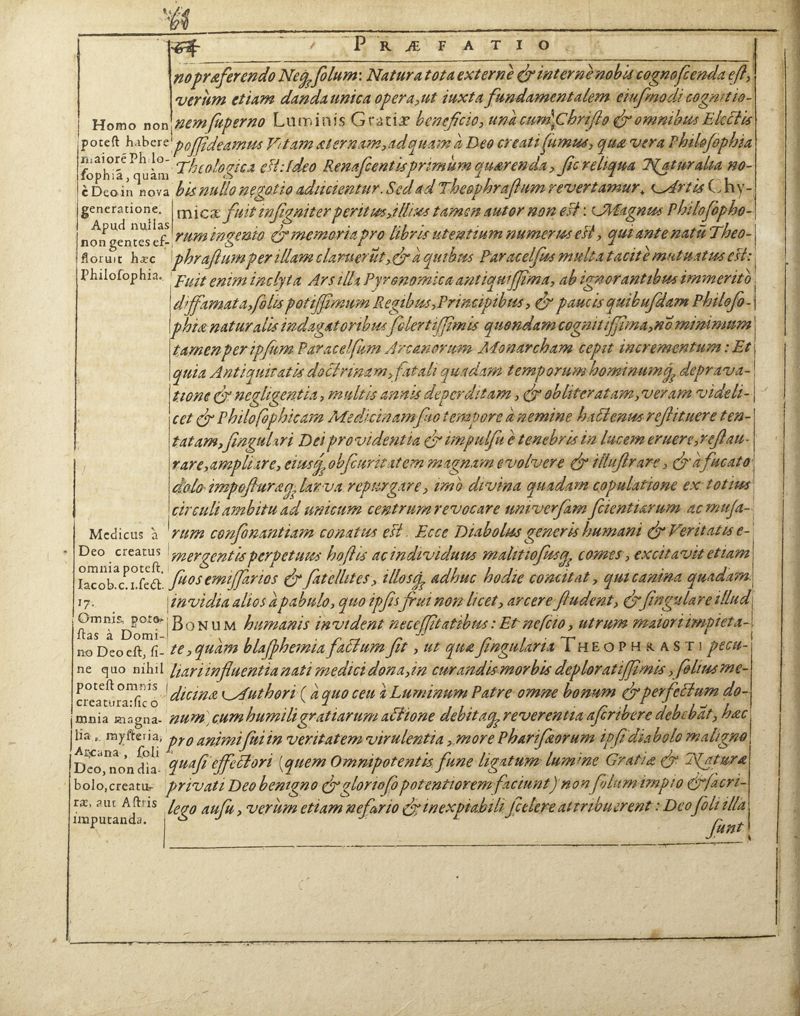 68
64
PRÆFATIO
no præferendo Neq; solum: Natura tota externè & internè nobis cognoscenda est,
verùm etiam danda unica opera, ut iuxta fundamentalem eiusmodi cognitio-
nem superno Luminis Gratiæ beneficio, unà cum Christo & omnibus Electis
possideamus Vitam æternam, ad quam à Deo creati sumus, quæ vera Philosophia
Theologica est: Ideo Renascentis primùm quærenda, sic reliqua Naturalia no-
bis nullo negotio adiicientur. Sed ad Theophrastum revertamur. Artis Chy-
micæ fuit insigniter peritus, illius tamen autor non est: Magnus Philosopho-
rum ingenio & memoria pro libris utentium numerus est, qui ante natū Theo-
phrastum per illam claruerūt, & à quibus Paracelsus multa tacitè mutuatus est:
Fuit enim inclyta Ars illa Pyronomica antiquissima, ab ignorantibus immeritò
diffamata, solis potissimum Regibus, Principibus, & paucis quibusdam Philoso-
phiæ naturalis indagatoribus solertissimis quondam cognitissima, nō minimum
tamen per ipsum Paracelsum Arcanorum Monarcham cepit incrementum: Et
quia Antiquitatis doctrinam, fatali quadam temporum hominumq; deprava-
tione & negligentia, multis annis deperditam, & obliteratam, veram videli-
cet & Philosophicam Medicinam suo tempore à nemine hactenus restituere ten-
tatam, singulari Dei providentia & impulsu è tenebris in lucem eruere, restau-
rare, ampliare, eiusq; obscuritatem magnam evolvere & illustrare, & à fucato
dolo imposturæq; larva repurgare, imò divina quadam copulatione ex totius
circuli ambitu ad unicum centrum revocare universam scientiarum ac musa-
rum consonantiam conatus est. Ecce Diabolus generis humani & Veritatis e-
mergentis perpetuus hostis ac individuus malitiosusq; comes, excitavit etiam
suos emissarios & satellites, illosq; adhuc hodie concitat, qui canina quadam
invidia alios à pabulo, quo ipsis frui non licet, arcere student, & singulare illud
BONUM humanis invident necessitatibus: Et nescio, utrum maiori impieta-
te, quàm blasphemia factum sit, ut quæ singularia THEOPHRASTI pecu-
liari influentia nati medici dona, in curandis morbis deploratissimis, solius me-
dicinæ Authori (à quo ceu à Luminum Patre omne bonum & perfectum do-
num) cum humili gratiarum actione debitaq; reverentia ascribere debebāt, hæc
pro animi sui in veritatem virulentia, more Pharisæorum ipsi diabolo maligno
quasi effectori (quem Omnipotentis fune ligatum lumine Gratiæ & Naturæ
privati Deo benigno & glorioso potentiorem faciunt) non solum impio & sacri-
lego ausu, verùm etiam nefario & inexpiabili scelere attribuerent: Deo soli illa
sunt
Homo non
potest habere
maiorē Philo-
sophiā, quàm
è Deo in nova
generatione.
Apud nullas
non gentes ef-
floruit hæc
Philosophia.
Medicus à
Deo creatus
omnia potest.
Iacob. c. 1. sect.
17.
Omnis, pote-
stas à Domi-
no Deo est, si-
ne quo nihil
potest omnis
creatura: sic o
mnia magna-
lia, mysteria,
Arcana, soli
Deo, non dia-
bolo, creatu-
ræ, aut Astris
imputanda.